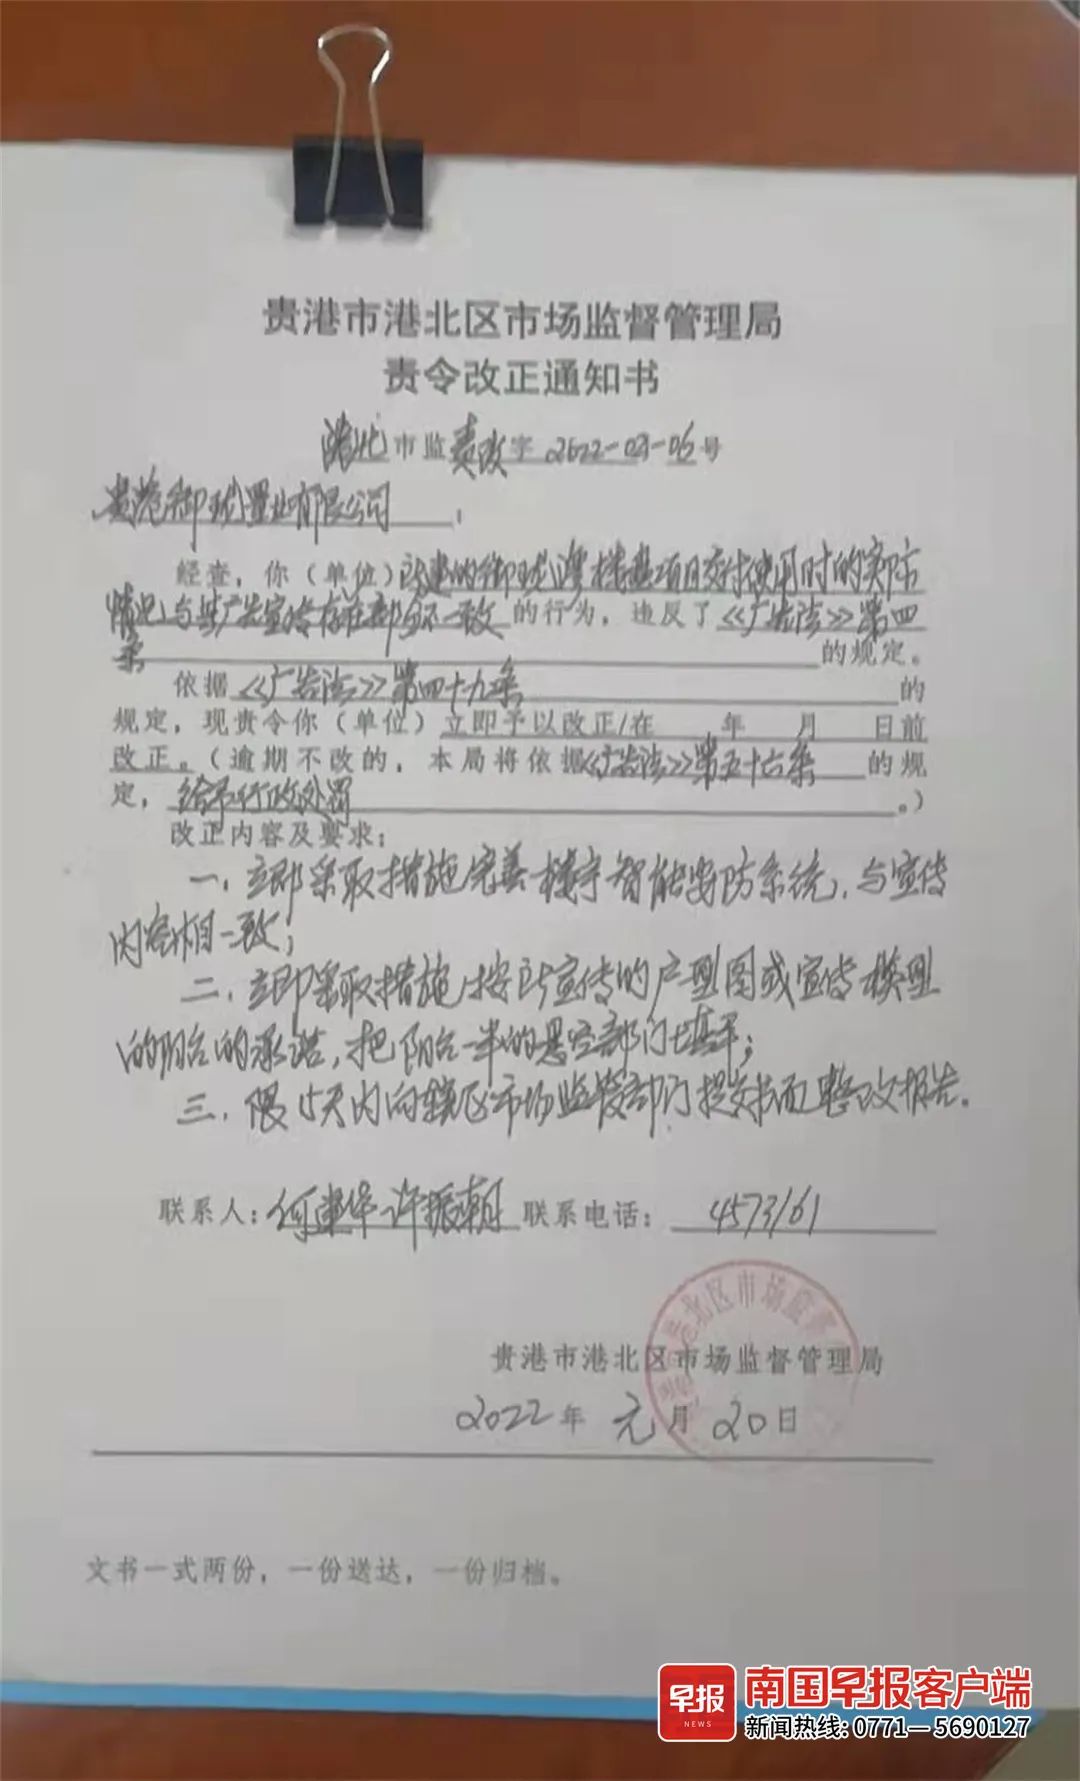 贵港市港北区市场监督管理局
责令改正通知书
港北市监责改字2022-03-06号
贵港御珑置业有限公司:
经查,你(单位)所建的御珑湾楼盘项目交付使用时的实际
情况与其广告宣传存在部分不一致的行为,违反了《广告法》第四
条的规定。
依据《广告法》第四十九条的
规定,现责令你(单位)立即予以改正/在 年 月 日前
改正。(逾期不改的,本局将依据《广告法》第五十六条的规
定,给予行政处罚。)
改正内容及要求:
一、立即采取措施完善楼宇智能安防系统,与宣传
内容相一致;
二、立即采取措施,按所宣传的户型图或宣传模型
的阳台的承诺,把阳台一半的悬空部门填平;
三、限15天内向辖区市场监管部门提交书面整改报告。
联系人:何 许振朝 联系电话:4573161
贵港市港北区市场监督管理局
2022年元月20日
文书一式两份,一份送达,一份归档。
早报
NEWS
南国早报客户端
新闻热线:0771—5690127